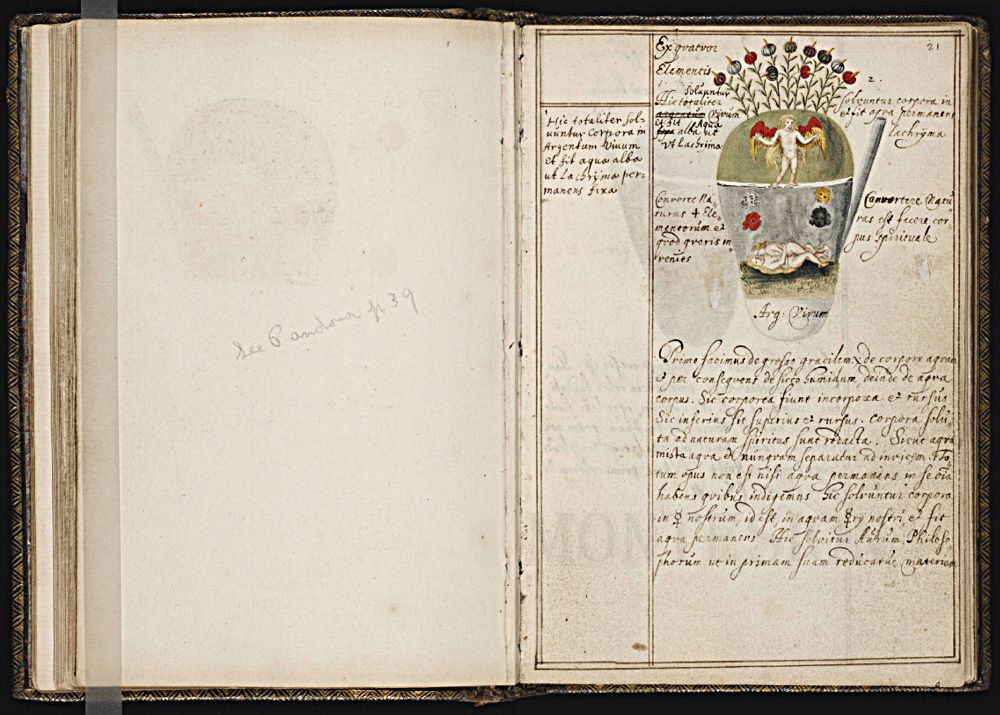 See Pandora p 39
21
2.
Ex qvatvor
Elementis
Solvuntur
Hic totaliter
argentum Vivum
et fit Aqua
alba ut
Vt Lachrima
Solvuntur corpora in
et fit aqva permanens
Lachryma
Hic totaliter Sol-
vuntur Corpora in
Argentum Vivum
et fit aqua alba
ut Lachryma per-
manens fixa
Converte Na-
turas 4 Ele-
mentorum et
qvod qveris in
venies
Convertere Natu
ras est facere cor
pus spirituale
Arg: Vivum
Primo facimus de grosso gracilem, de corpore aqvam
et per conseqvens de sicco humidum, deinde de aqva
corpus. Sic corporea fiunt incorporea et rursus
Sic inferius sit superius et rursus. Corpora solu-
ta ad naturam spiritus sunt redacta. Sicut aqva
mista aqva et nunqvam separatur ad invicem. To-
tum opus non est nisi aqva permanens in se oīa
habens qvibus indigemus Hic solvuntur corpora
in ☿ nostrum, id est, in aqvam ☿ry nostri, et fit
aqva permanens Hic solvitur Aurum Philoso
phorum ut in primam suam reducatur materiam